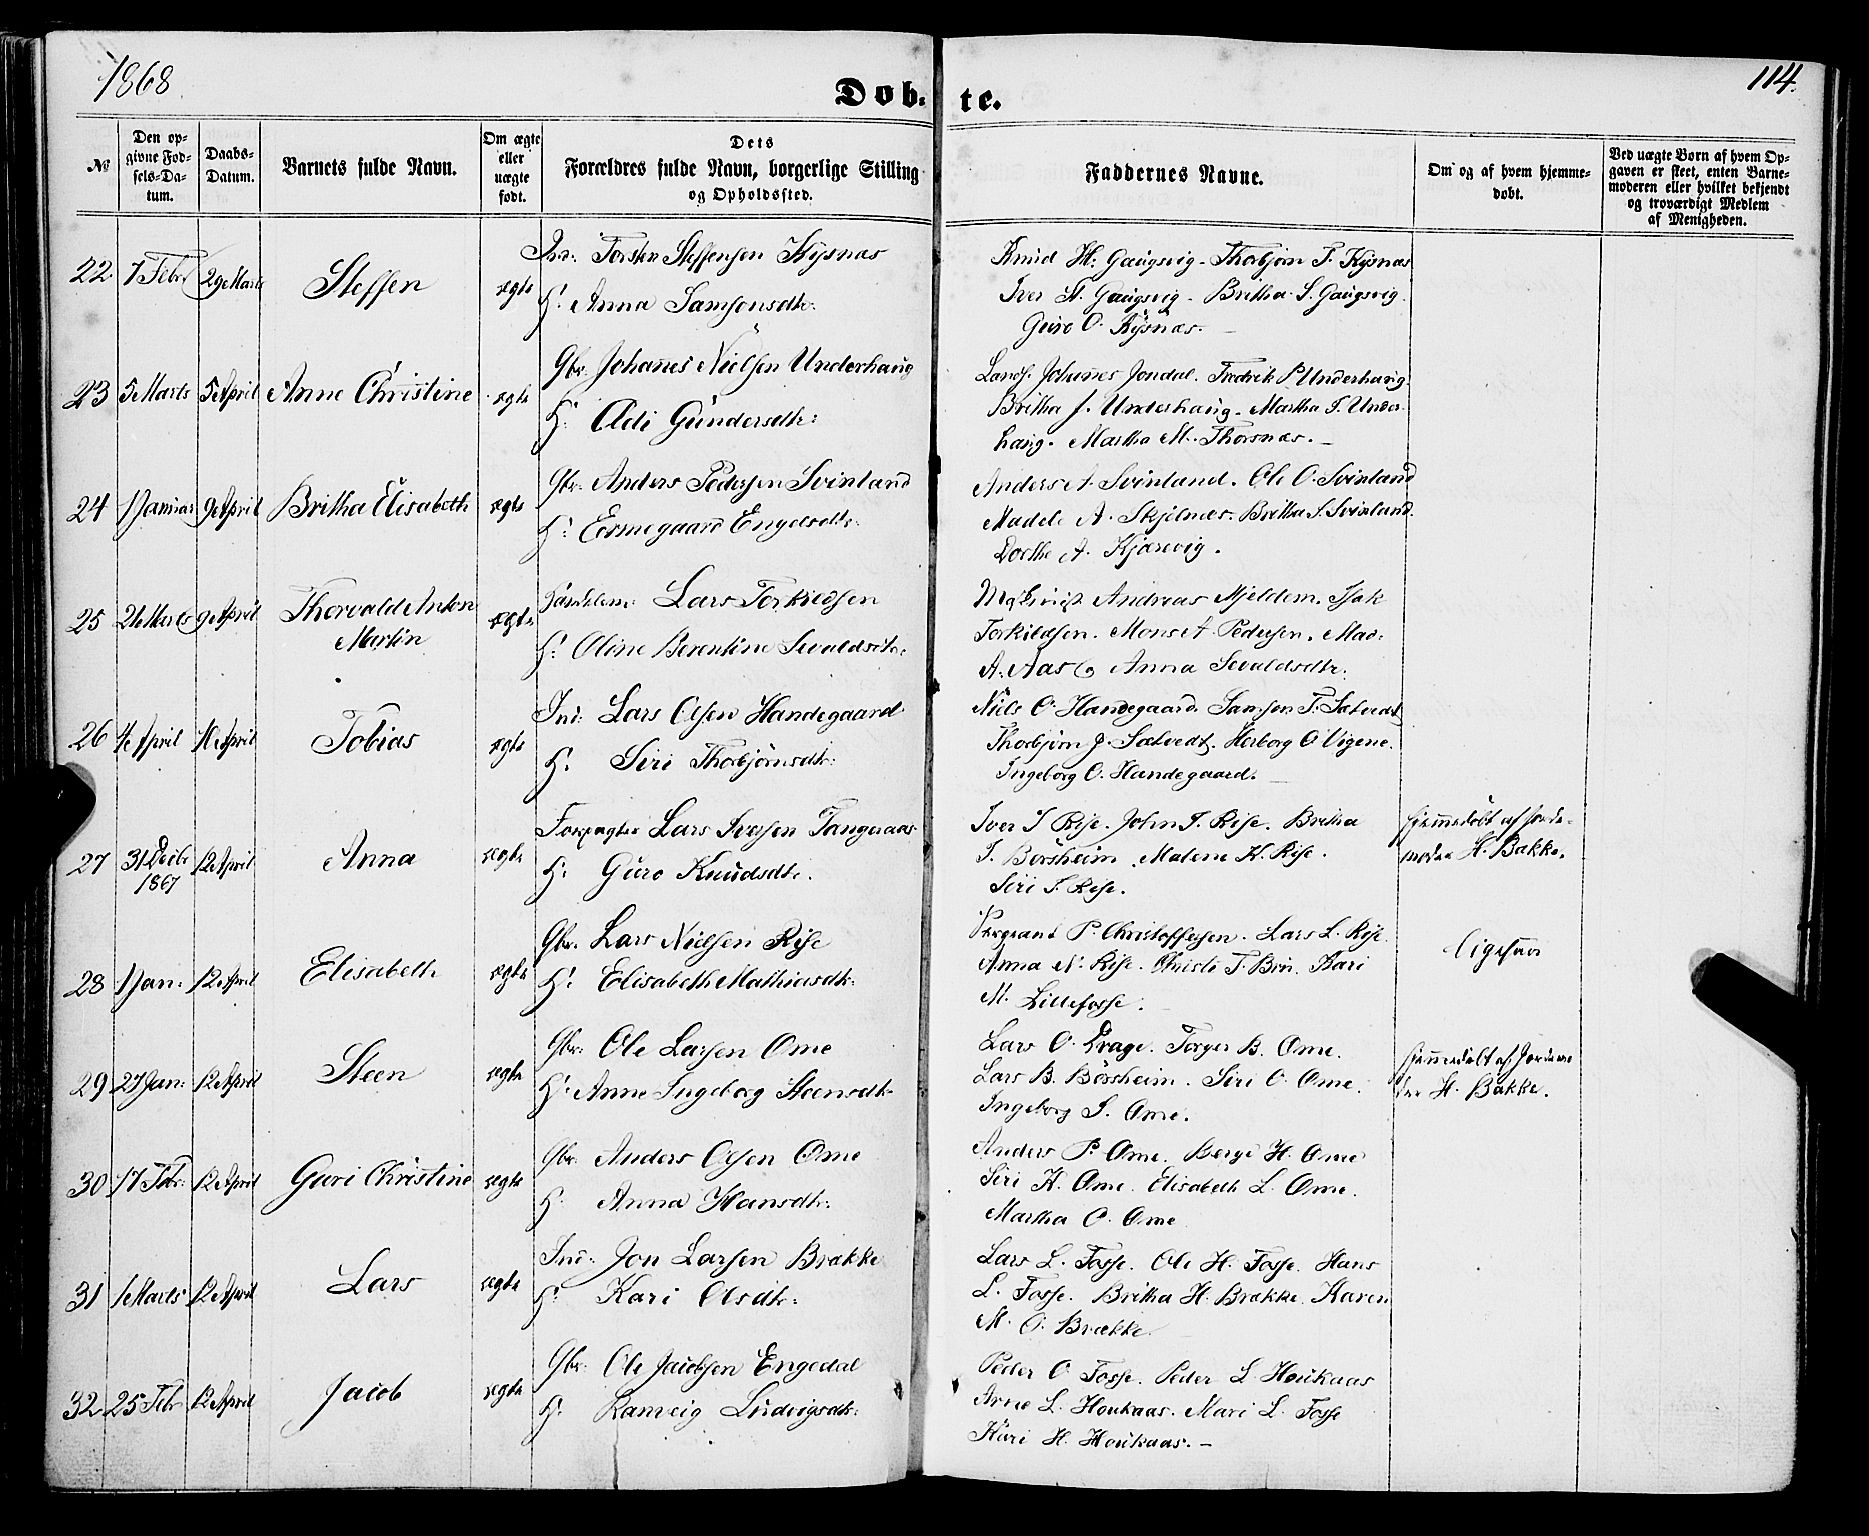 1868
114.
Døb- te.
№
Den op-
givne Fød-
sels-Da-
tum.
Daabs-
Datum.
Barnets fulde Navn.
Om ægte
eller
uægte
født.
Dets
Forældres fulde Navn, borgerlige Stilling
og Opholdssted.
Faddernes Navne.
Om og af hvem hjemme-
døbt.
Ved uægte Børn af hvem Op-
gaven er skeet, enten Barne-
moderen eller hvilket bekjendt
og troværdigt Medlem
af Menigheden.
22 7 Febr 29 Marts Steffen ægte Torsten Steffensen Kysnæs
H: Anna Samsonsdtr:
Knud H: Gaugsvig - Thorbjørn T. Kysnæs
Iver St. Gaugsvig - Britha S. Gaugsvig.
Guro O. Kysnæs. -
23 5 Marts 5 April Anne Christine ægte Gbr: Johannes Nielsen Underhaug
H: Adi Gundersdtr:
Landh. Johannes Jondal. Fredrik P Underhaug
Britha J. Underhaug. Martha T. Under-
haug. Martha M. Thorsnæs. -
24 1 Januar 9 April Britha Elisabeth ægte Gbr: Anders Pedersen Svinland
H: Ermegaard Engelsdtr:
Anders A. Svinland. Ole O. Svinland
Madele A. Skjelnæs. Britha S. Svinland.
Dorthe A. Kjærevig.
25 26 Marts 9 April Thorvald Anton ægte Lars Torkildsen
Martin
H: Oline Berentine Sevaldsdtr:
Andreas Mjeldem. Isak
Torkildsen. Mons A. Pedersen. Mad:
A. Aas & Anna Sevaldsdtr.
26 4 April 10 April Tobias ægte Ind: Lars Olsen Handegaard
H: Siri Thorbjørnsdtr:
Niels O. Handegaard. Samson T. Sætvedt
Thorbjørn J. Sætvedt. Herborg O Vigene.
Ingeborg O. Handegaard. -
27 31 Decbr 12 April Anna ægte Forpagter Lars Iversen Tangeraas
1867
H: Guro Knudsdtr.
Iver I Rise. John I. Rise. Britha
I. Børsheim. Malene K. Rise.
Siri S. Rise.
hjemmedøbt af Jorde-
moder H. Bakke.
28 1 Jan: 12 April Elisabeth ægte Gbr. Lars Nielsen Rise
H: Elisabeth Mathiasdtr:
P. Christoffersen. Lars L. Rise
Anna N. Rise. Christi T. Bru. Kari
M. Lillefosse.
ligesaa
29 27 Jan: 12 April Steen ægte Gbr: Ole Larsen Ome
H: Anne Ingeborg Steensdtr
Lars O. Drage. Torger B. Ome.
Lars B. Børsheim. Siri O. Ome.
Ingeborg S. Ome.
hjemmedøbt af Jordemo
der H. Bakke.
30 17 Febr: 12 April Guri Christine ægte Gbr. Anders Olsen Ome
H: Anna Hansdtr:
Anders P. Ome. Berge H. Ome
Siri K. Ome. Elisabeth L. Ome.
Martha O. Ome
31 1 Marts 12 April Lars ægte Ind: Jon Larsen Brække
H: Kari Olsdtr:
Lars L. Fosse. Ole H. Fosse. Hans
L. Fosse. Britha H. Brække. Karen
M. O. Brække.
32 25 Febr 12 April Jacob ægte Gbr: Ole Jacobsen Engedal
H: Ranveig Ludvigsdtr:
Peder O. Fosse. Peder L. Houkaas
Arne L. Houkaas. Mari L. Fosse
Kari H. Houkaas. -